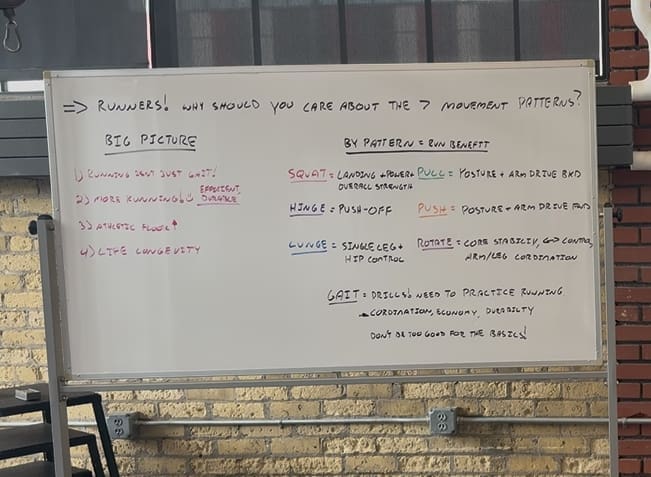 ⇒ RUNNERS! WHY SHOULD YOU CARE ABOUT THE 7 MOVEMENT PATTERNS?
BIG PICTURE
1) RUNNING ISN'T JUST GAIT!
2) MORE RUNNING! EFFICIENT, DURABLE
3) ATHLETIC FLOOR ↑
4) LIFE LONGEVITY
BY PATTERN = RUN BENEFIT
SQUAT = LANDING + POWER +
OVERALL STRENGTH
PULL = POSTURE + ARM DRIVE BKD
HINGE = PUSH-OFF
PUSH = POSTURE + ARM DRIVE FWD
LUNGE = SINGLE LEG +
HIP CONTROL
ROTATE = CORE STABILITY, CONTROL,
ARM/LEG CORDINATION
GAIT = DRILLS! NEED TO PRACTICE RUNNING
CORDINATION, ECONOMY, DURABILTY
DON'T BE TOO GOOD FOR THE BASICS!